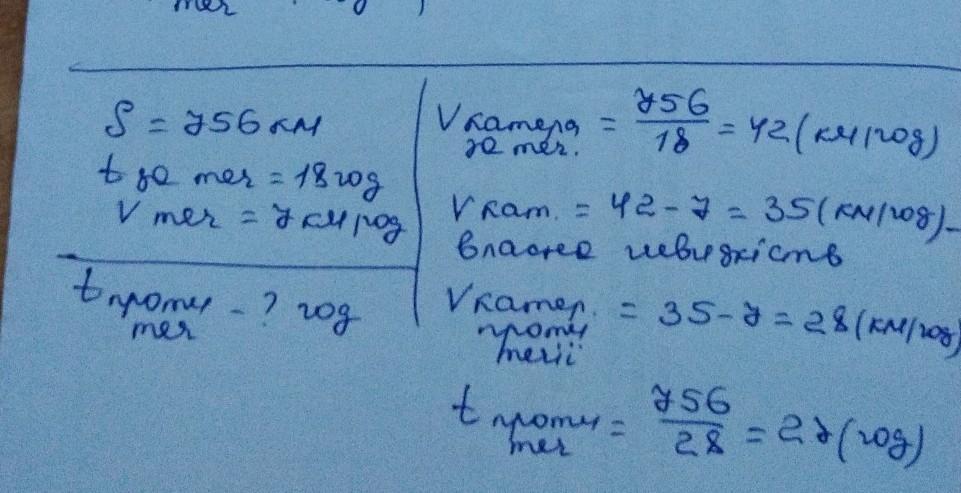 теч
S = 756 км
t за теч = 18 год
V теч = 7 км/год
t проти - ? год
теч
V катера = 756/18 = 42 (км/год)
за теч.
V кат. = 42 - 7 = 35 (км/год) -
власна швидкість
V катер. = 35 - 7 = 28 (км/год)
проти
течії
t проти = 756/28 = 27 (год)
теч